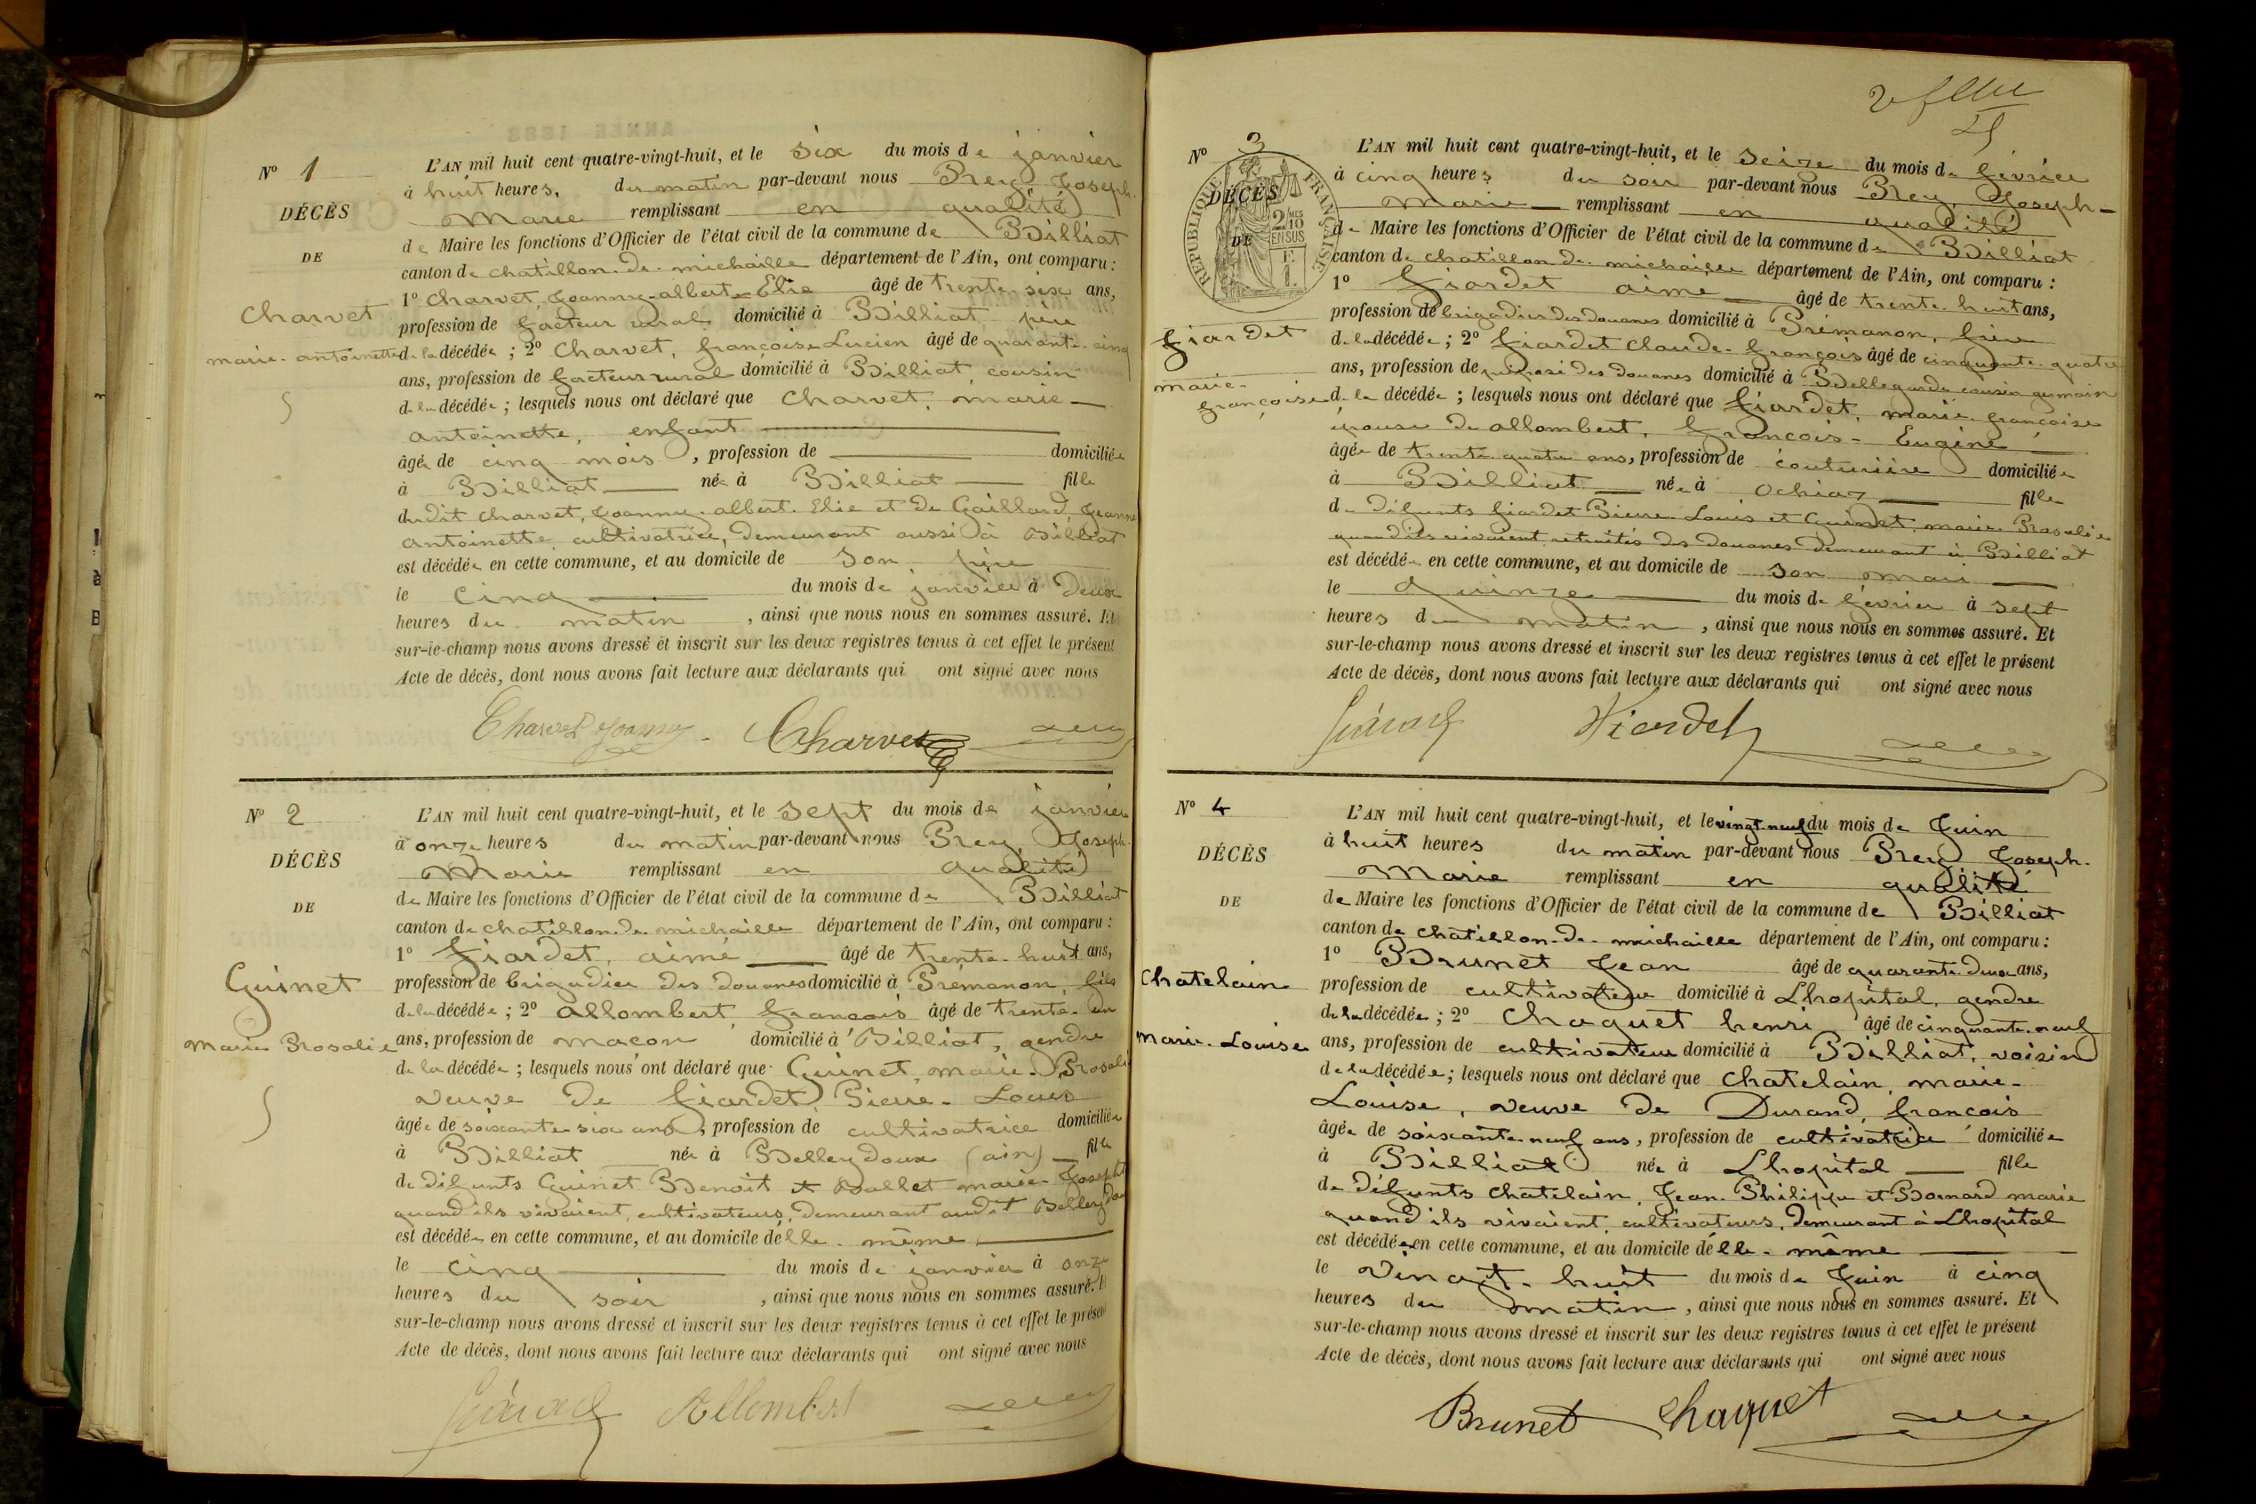 N° 1
DÉCÈS
DE
Charvet
marie-antoinette
L'AN mil huit cent quatre-vingt-huit, et le six du mois de janvier
à huit heures, du matin par-devant nous Prey, Joseph-
Marie remplissant en qualité
de Maire les fonctions d'Officier de l'état civil de la commune de Billiat
canton de chatillon-de-michaille département de l'Ain, ont comparu :
1° Charvet, Joanny-albert-Elie âgé de trente-six ans,
profession de facteur rural domicilié à Billiat, père
de la décédée ; 2° Charvet, françois Lucien âgé de quarante-cinq
ans, profession de facteur rural domicilié à Billiat, cousin
de la décédée ; lesquels nous ont déclaré que Charvet, marie-
antoinette, enfant
âgée de cinq mois, profession de domiciliée
à Billiat née à Billiat fille
dudit charvet, Joanny-albert-Elie et de Gaillard, Jeanne
antoinette, cultivatrice, demeurant aussi à Billiat
est décédée en cette commune, et au domicile de son père
le cinq du mois de janvier à deux
heures du matin, ainsi que nous nous en sommes assuré. Et
sur-le-champ nous avons dressé et inscrit sur les deux registres tenus à cet effet le présent
Acte de décès, dont nous avons fait lecture aux déclarants qui ont signé avec nous
Charvet Joanny Charvet
N° 2
DÉCÈS
DE
Guinet
Marie Rosalie
L'AN mil huit cent quatre-vingt-huit, et le sept du mois de janvier
à onze heures du matin par-devant nous Prey, Joseph-
Marie remplissant en qualité
de Maire les fonctions d'Officier de l'état civil de la commune de Billiat
canton de chatillon-de-michaille département de l'Ain, ont comparu :
1° fiardet, aimé âgé de trente-huit ans,
profession de brigadier des douanes domicilié à Prémanon, fils
de la décédée ; 2° allombert, françois âgé de trente-un
ans, profession de maçon domicilié à Billiat, gendre
de la décédée ; lesquels nous ont déclaré que Guinet, marie-Rosalie
veuve de fiardet, Pierre-Louis
âgée de soixante-six ans, profession de cultivatrice domiciliée
à Billiat née à Belleydoux (ain) fille
de défunts Guinet Benoit et Ballet marie-Josepht
quand ils vivaient, cultivateurs, demeurant audit Belleydoux
est décédée en cette commune, et au domicile d'elle-même
le cinq du mois de janvier à onze
heures du soir, ainsi que nous nous en sommes assuré. Et
sur-le-champ nous avons dressé et inscrit sur les deux registres tenus à cet effet le présent
Acte de décès, dont nous avons fait lecture aux déclarants qui ont signé avec nous
Allombert
2e
N° 3
DÉCÈS
DE
RÉPUBLIQUE FRANÇAISE
2/10
EN SUS
fiardet
marie-
françoise
L'AN mil huit cent quatre-vingt-huit, et le seize du mois de février
à cinq heures du soir par-devant nous Prey, Joseph-
Marie remplissant en qualité
de Maire les fonctions d'Officier de l'état civil de la commune de Billiat
canton de chatillon-de-michaille département de l'Ain, ont comparu :
1° fiardet aimé âgé de trente-huit ans,
profession de brigadier des douanes domicilié à Prémanon, frère
de la décédée ; 2° fiardet claude-françois âgé de cinquante-quatre
ans, profession de préposé des douanes domicilié à Bellegarde cousin germain
de la décédée ; lesquels nous ont déclaré que fiardet, marie françoise
épouse de allombert, françois-Eugène
âgée de trente-quatre ans, profession de couturière domiciliée
à Billiat née à ochiaz fille
de défunts fiardet Pierre Louis et Guinet, marie Rosalie
quand ils vivaient retraités des douanes demeurant à Billiat
est décédée en cette commune, et au domicile de son mari
le quinze du mois de février à sept
heures du matin, ainsi que nous nous en sommes assuré. Et
sur-le-champ nous avons dressé et inscrit sur les deux registres tenus à cet effet le présent
Acte de décès, dont nous avons fait lecture aux déclarants qui ont signé avec nous
Fiardet
N° 4
DÉCÈS
DE
Chatelain
Marie-Louise
L'AN mil huit cent quatre-vingt-huit, et le vingt-neuf du mois de Juin
à huit heures du matin par-devant nous Prey Joseph-
Marie remplissant en qualité
de Maire les fonctions d'Officier de l'état civil de la commune de Billiat
canton de chatillon-de-michaille département de l'Ain, ont comparu :
1° Brunet Jean âgé de quarante-deux ans,
profession de cultivateur domicilié à Lhopital, gendre
de la décédée ; 2° Chaquet henri âgé de cinquante-neuf
ans, profession de cultivateur domicilié à Billiat, voisin
de la décédée ; lesquels nous ont déclaré que Chatelain, marie-
Louise, veuve de Durand, françois
âgée de soixante-neuf ans, profession de cultivatrice domiciliée
à Billiat née à Lhopital fille
de défunts chatelain, Jean-Philippe et Bornard marie
quand ils vivaient, cultivateurs, demeurant à Lhopital
est décédée en cette commune, et au domicile d'elle-même
le vingt-huit du mois de Juin à cinq
heures du matin, ainsi que nous nous en sommes assuré. Et
sur-le-champ nous avons dressé et inscrit sur les deux registres tenus à cet effet le présent
Acte de décès, dont nous avons fait lecture aux déclarants qui ont signé avec nous
Brunet Chaquet